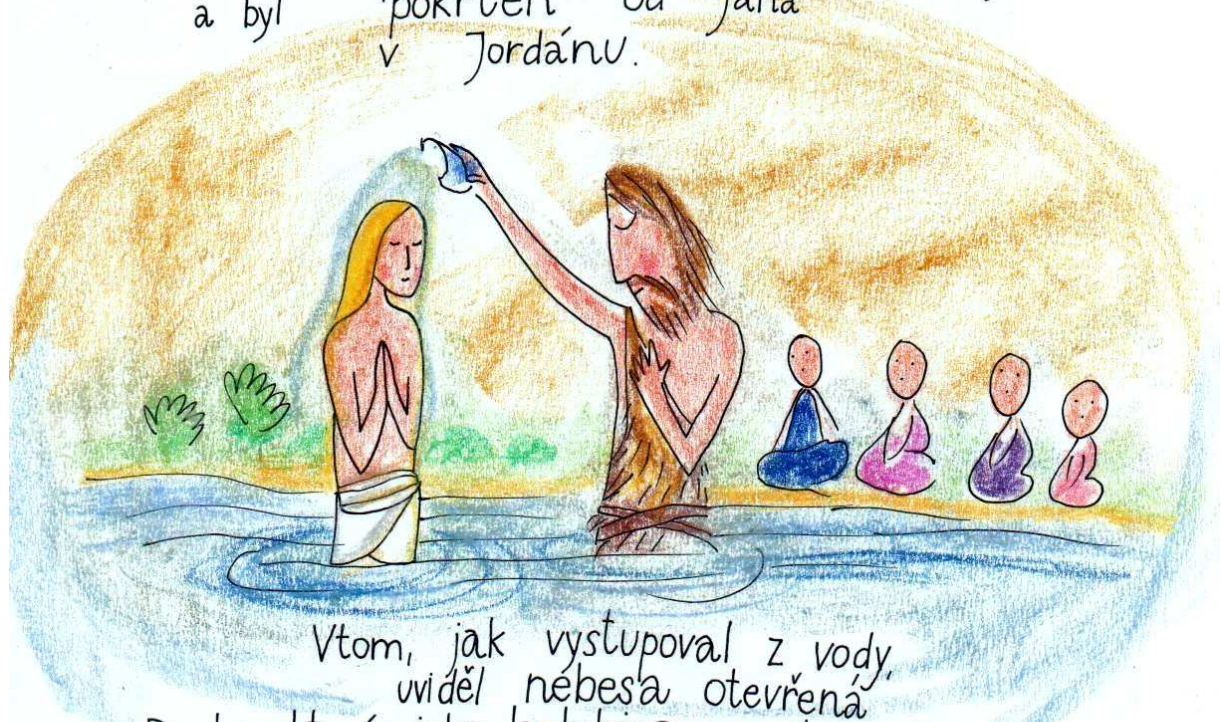 a byl pokřtěn od Jana
v Jordánu.
Vtom, jak vystupoval z vody,
uviděl nebesa otevřená